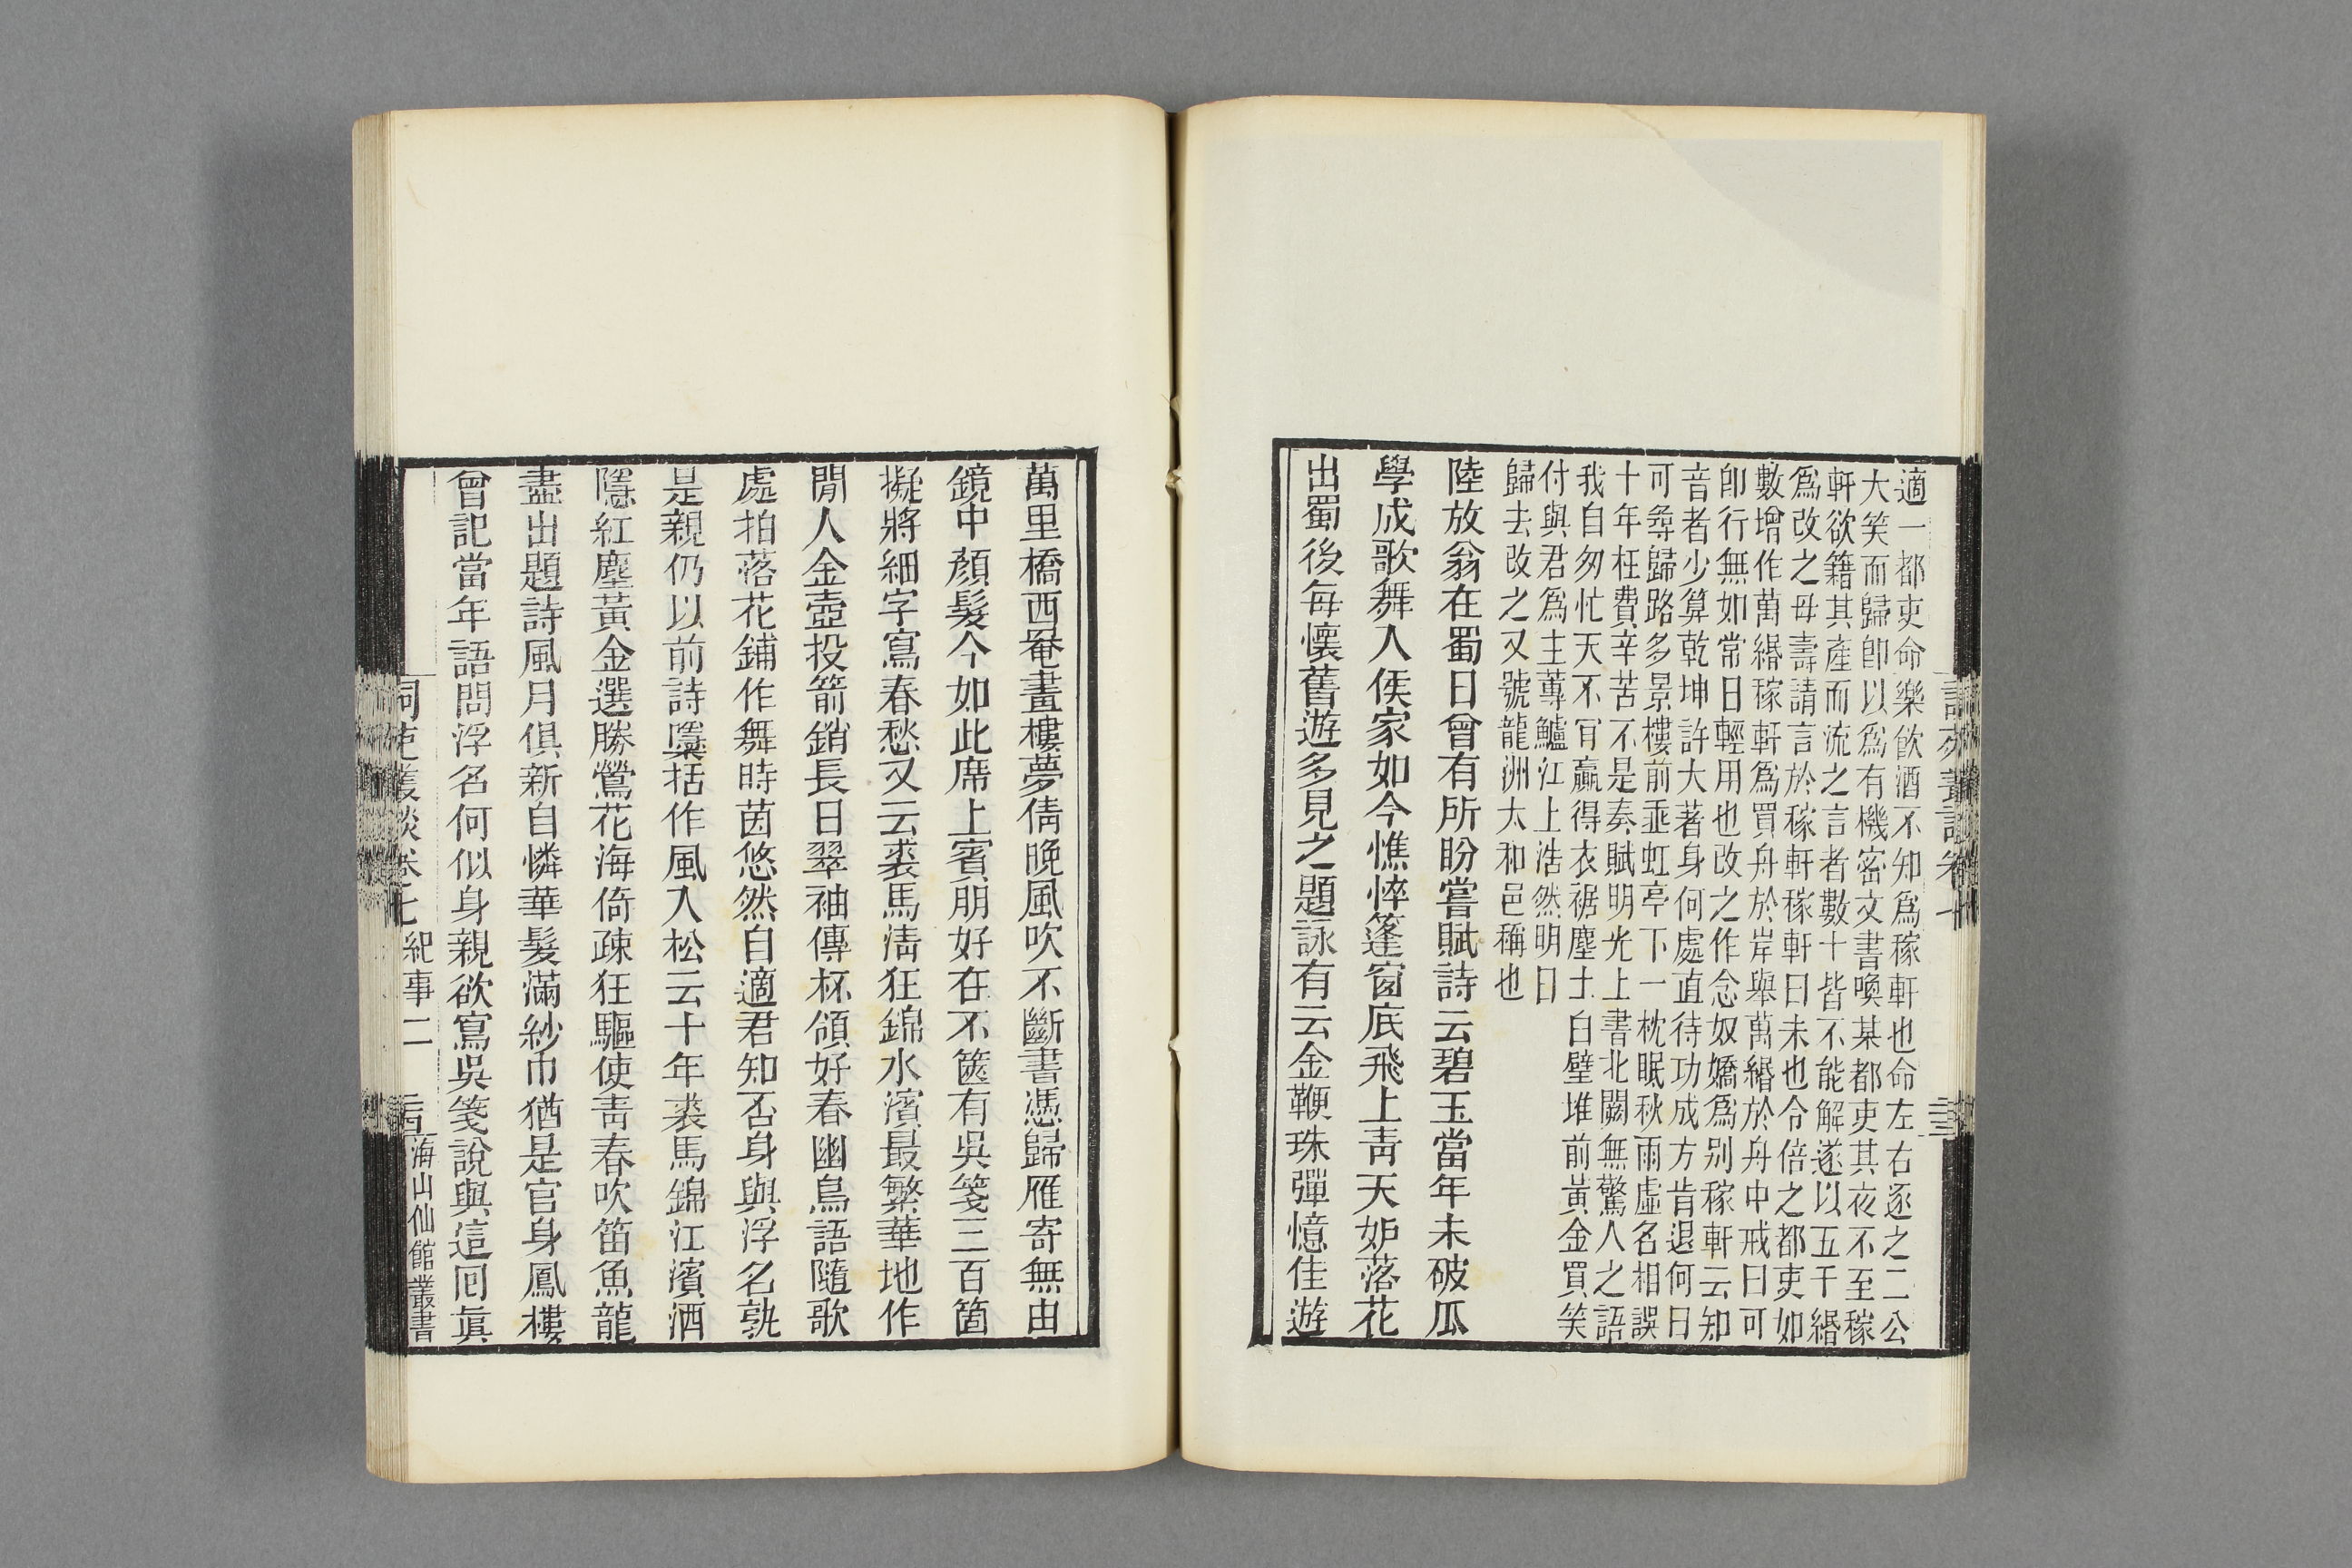 適一都吏命樂飲酒不知爲稼軒也命左右逐之二公
大笑而歸卽以爲有機密文書喚某都吏其夜不至稼
軒欲籍其產而流之言者數十皆不能解遂以五千緡
爲改之母壽請言於稼軒稼軒曰未也令倍之都吏如
數增作萬緡稼軒爲買舟於岸舉萬緡於舟中戒曰可
卽行無如常日輕用也改之作念奴嬌爲别稼軒云知
音者少算乾坤許大著身何處直待功成方肯退何日
可尋歸路多景樓前垂虹亭下一枕眠秋雨虛名相誤
十年枉費辛苦不是奏賦明光上書北闕無驚人之語
我自匆忙天不肎贏得衣裾塵土白璧堆前黃金買笑
付與君爲主蓴鱸江上浩然明日
歸去改之又號龍洲太和邑稱也
陸放翁在蜀日曾有所盼嘗賦詩云碧玉當年未破瓜
學成歌舞入侯家如今憔悴篷窗底飛上青天妒落花
出蜀後每懷舊遊多見之題詠有云金鞭珠彈憶佳遊
萬里橋西罨畫樓夢倩晚風吹不斷書憑歸雁寄無由
鏡中顏髮今如此席上賓朋好在不篋有吳箋三百箇
擬將細字寫春愁又云裘馬淸狂錦水濱最繁華地作
閒人金壺投箭銷長日翠袖傳杯領好春幽鳥語隨歌
處拍落花鋪作舞時茵悠然自適君知否身與浮名孰
是親仍以前詩檃括作風入松云十年裘馬錦江濱酒
隱紅塵黃金選勝鶯花海倚疎狂驅使靑春吹笛魚龍
盡出題詩風月俱新自憐華髮滿紗巾猶是官身鳳樓
曾記當年語問浮名何似身親欲寫吳箋說與這回眞
詞苑叢談卷七 紀事二 海山仙館叢書